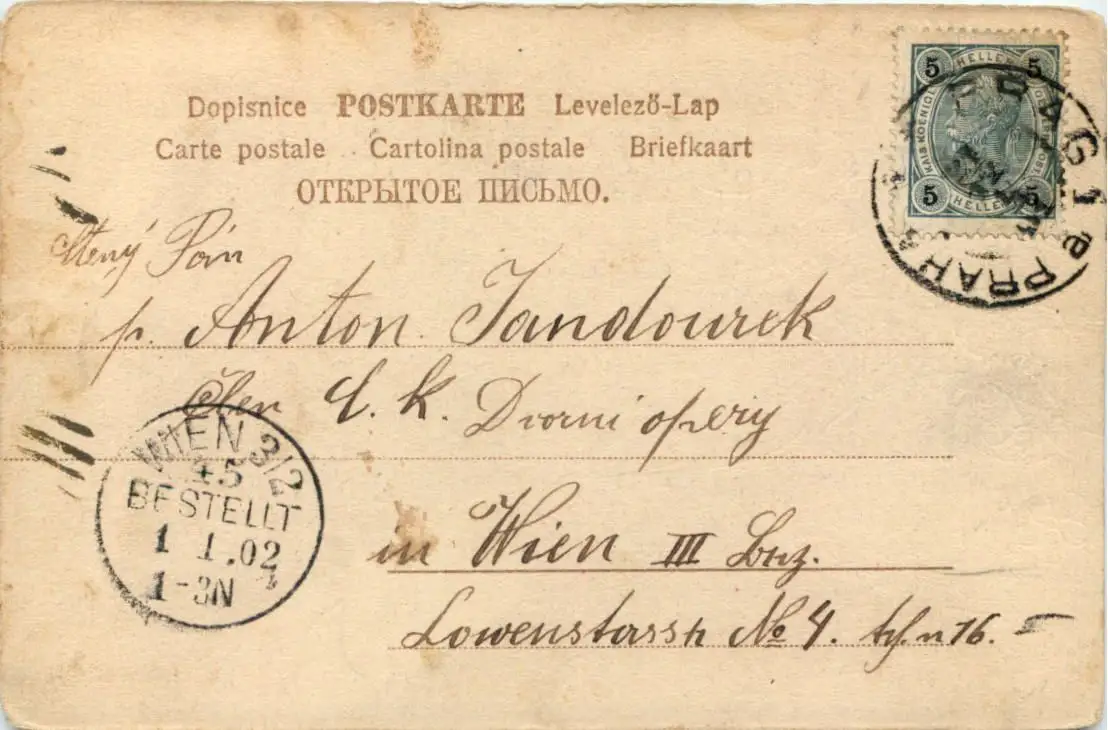 Dopisnice POSTKARTE Levelező-Lap
Carte postale Cartolina postale Briefkaart
ОТКРЫТОЕ ПИСЬМО.
5 HELLER 5
5 HELLER 5
PRAG 1 PRAHA
Ctený Pán
p. Anton Jandourek
Člen C. k. Dvorní opery
in Wien III Bez.
WIEN 3/2
45
BESTELLT
1 1.02
1-3N
No 4. 16.